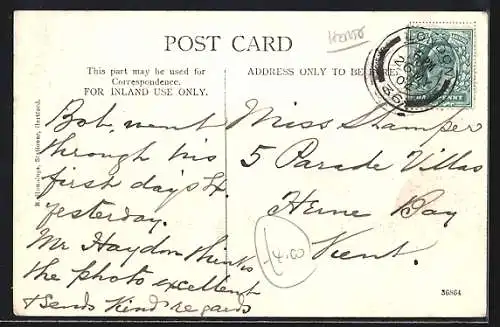 Herts
POST CARD
This part may be used for
Correspondence.
FOR INLAND USE ONLY.
ADDRESS ONLY TO BE
LONDON
HALFPENNY
Bob went
through his
first day's
yesterday.
Mr Haydon thinks
the photo excellent
& sends kind regards
Miss Stamper
5 Parade Villas
Herne Bay
Kent.
4.00
Stationer, Hertford.
36864